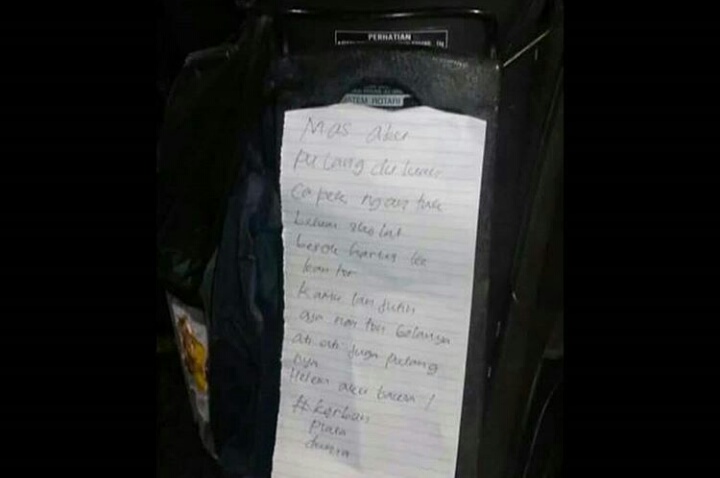 PERHATIAN
SISTEM ROTARI
Mas aku
pulang duluan
Capek, ngantuk
belum sholat
besok harus ke
kantor
Kamu lanjutin
aja nonton bolanya
ati ati juga pulang
nya
Helem aku bawa!
#korban
Piala
dunia